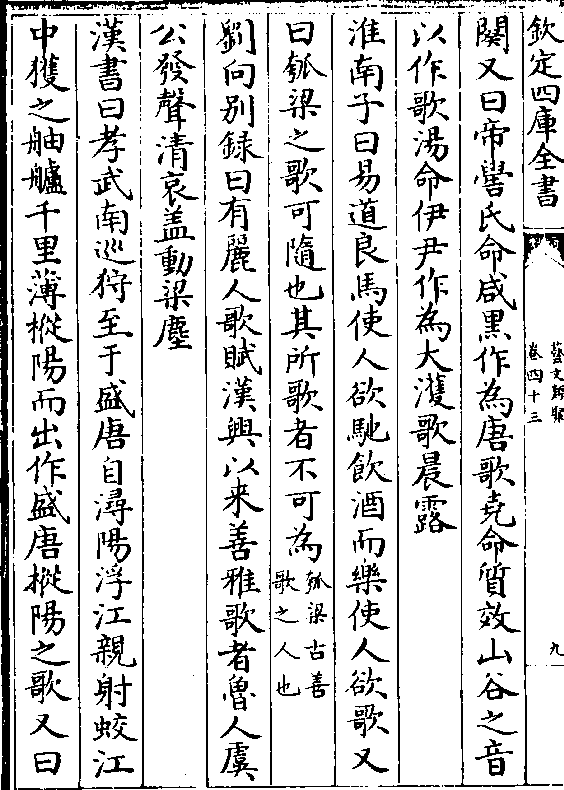 欽定四庫全書
藝文類聚
卷四十三
九
闋又曰帝嚳氏命咸黑作為唐歌堯命質效山谷之音
以作歌湯命伊尹作為大濩歌晨露
淮南子曰易道良馬使人欲馳飲酒而樂使人欲歌又
曰瓠梁之歌可隨也其所歌者不可為
瓠梁古善
歌之人也
劉向別錄曰有麗人歌賦漢興以来善雅歌者魯人虞
公發聲清哀盖動梁塵
漢書曰孝武南巡狩至于盛唐自潯陽浮江親射蛟江
中獲之舳艫千里薄樅陽而出作盛唐樅陽之歌又曰